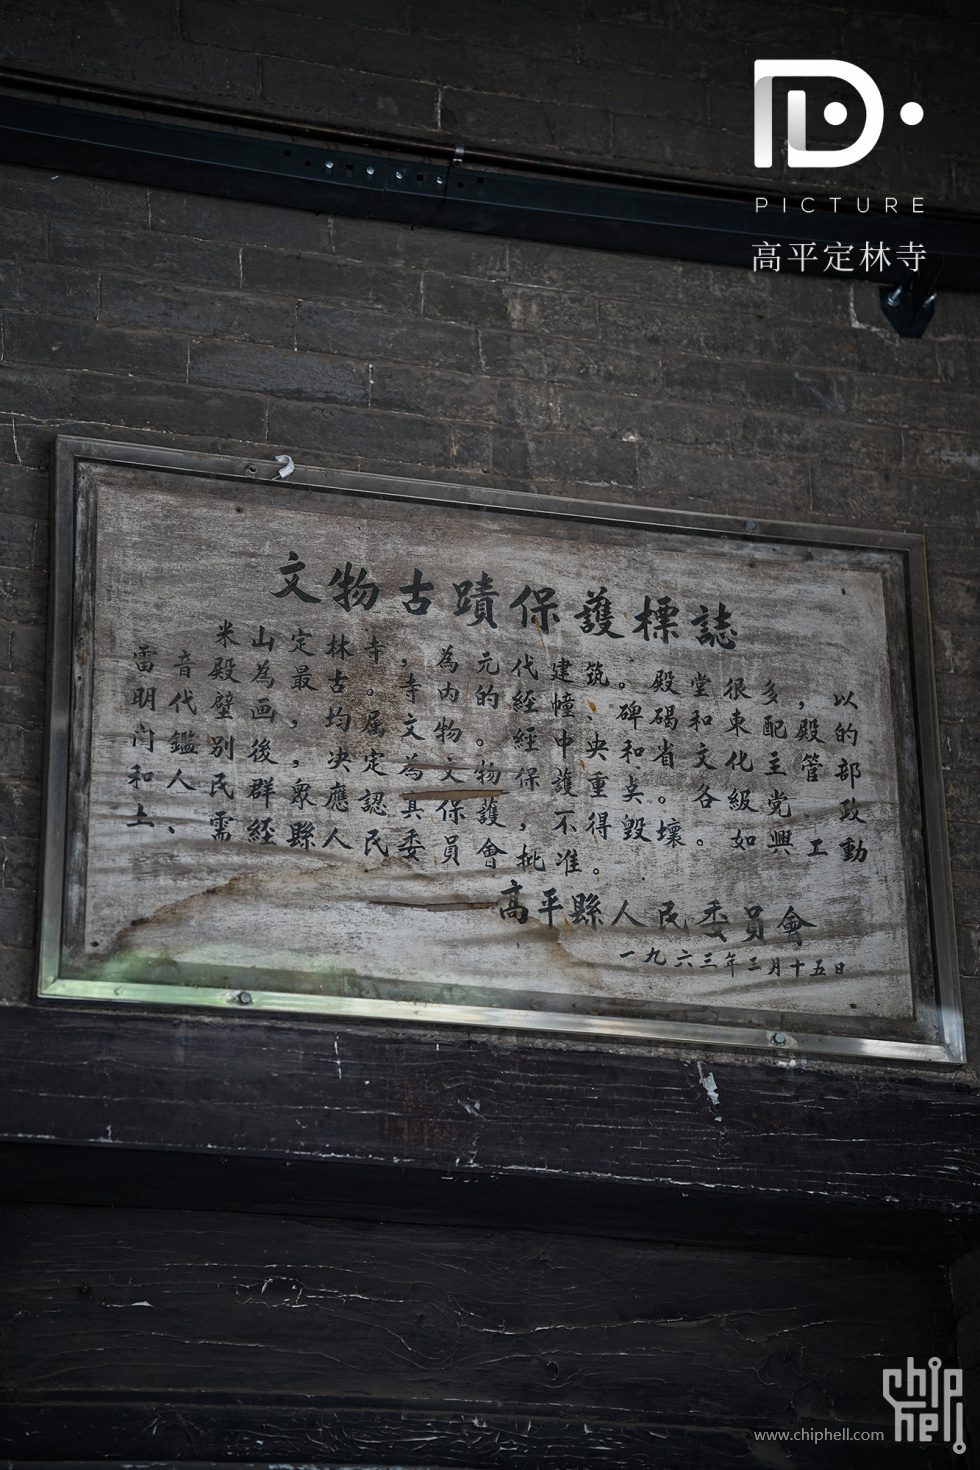 高平定林寺
PICTURE
文物古蹟保護標誌
米山定林寺，為元代建筑。殿堂很多，以
雷音殿為最古。寺内的經幢、碑碣和東配殿的
明代壁画，均属文物。經中央和省文化主管部
门鑑别後，决定為文物保護重奌。各級党政
和人民群眾應認真保護，不得毁壞。如興工動
土、需經縣人民委員會批准。
高平縣人民委員會
一九六三年三月十五日
chip hell
www.chiphell.com